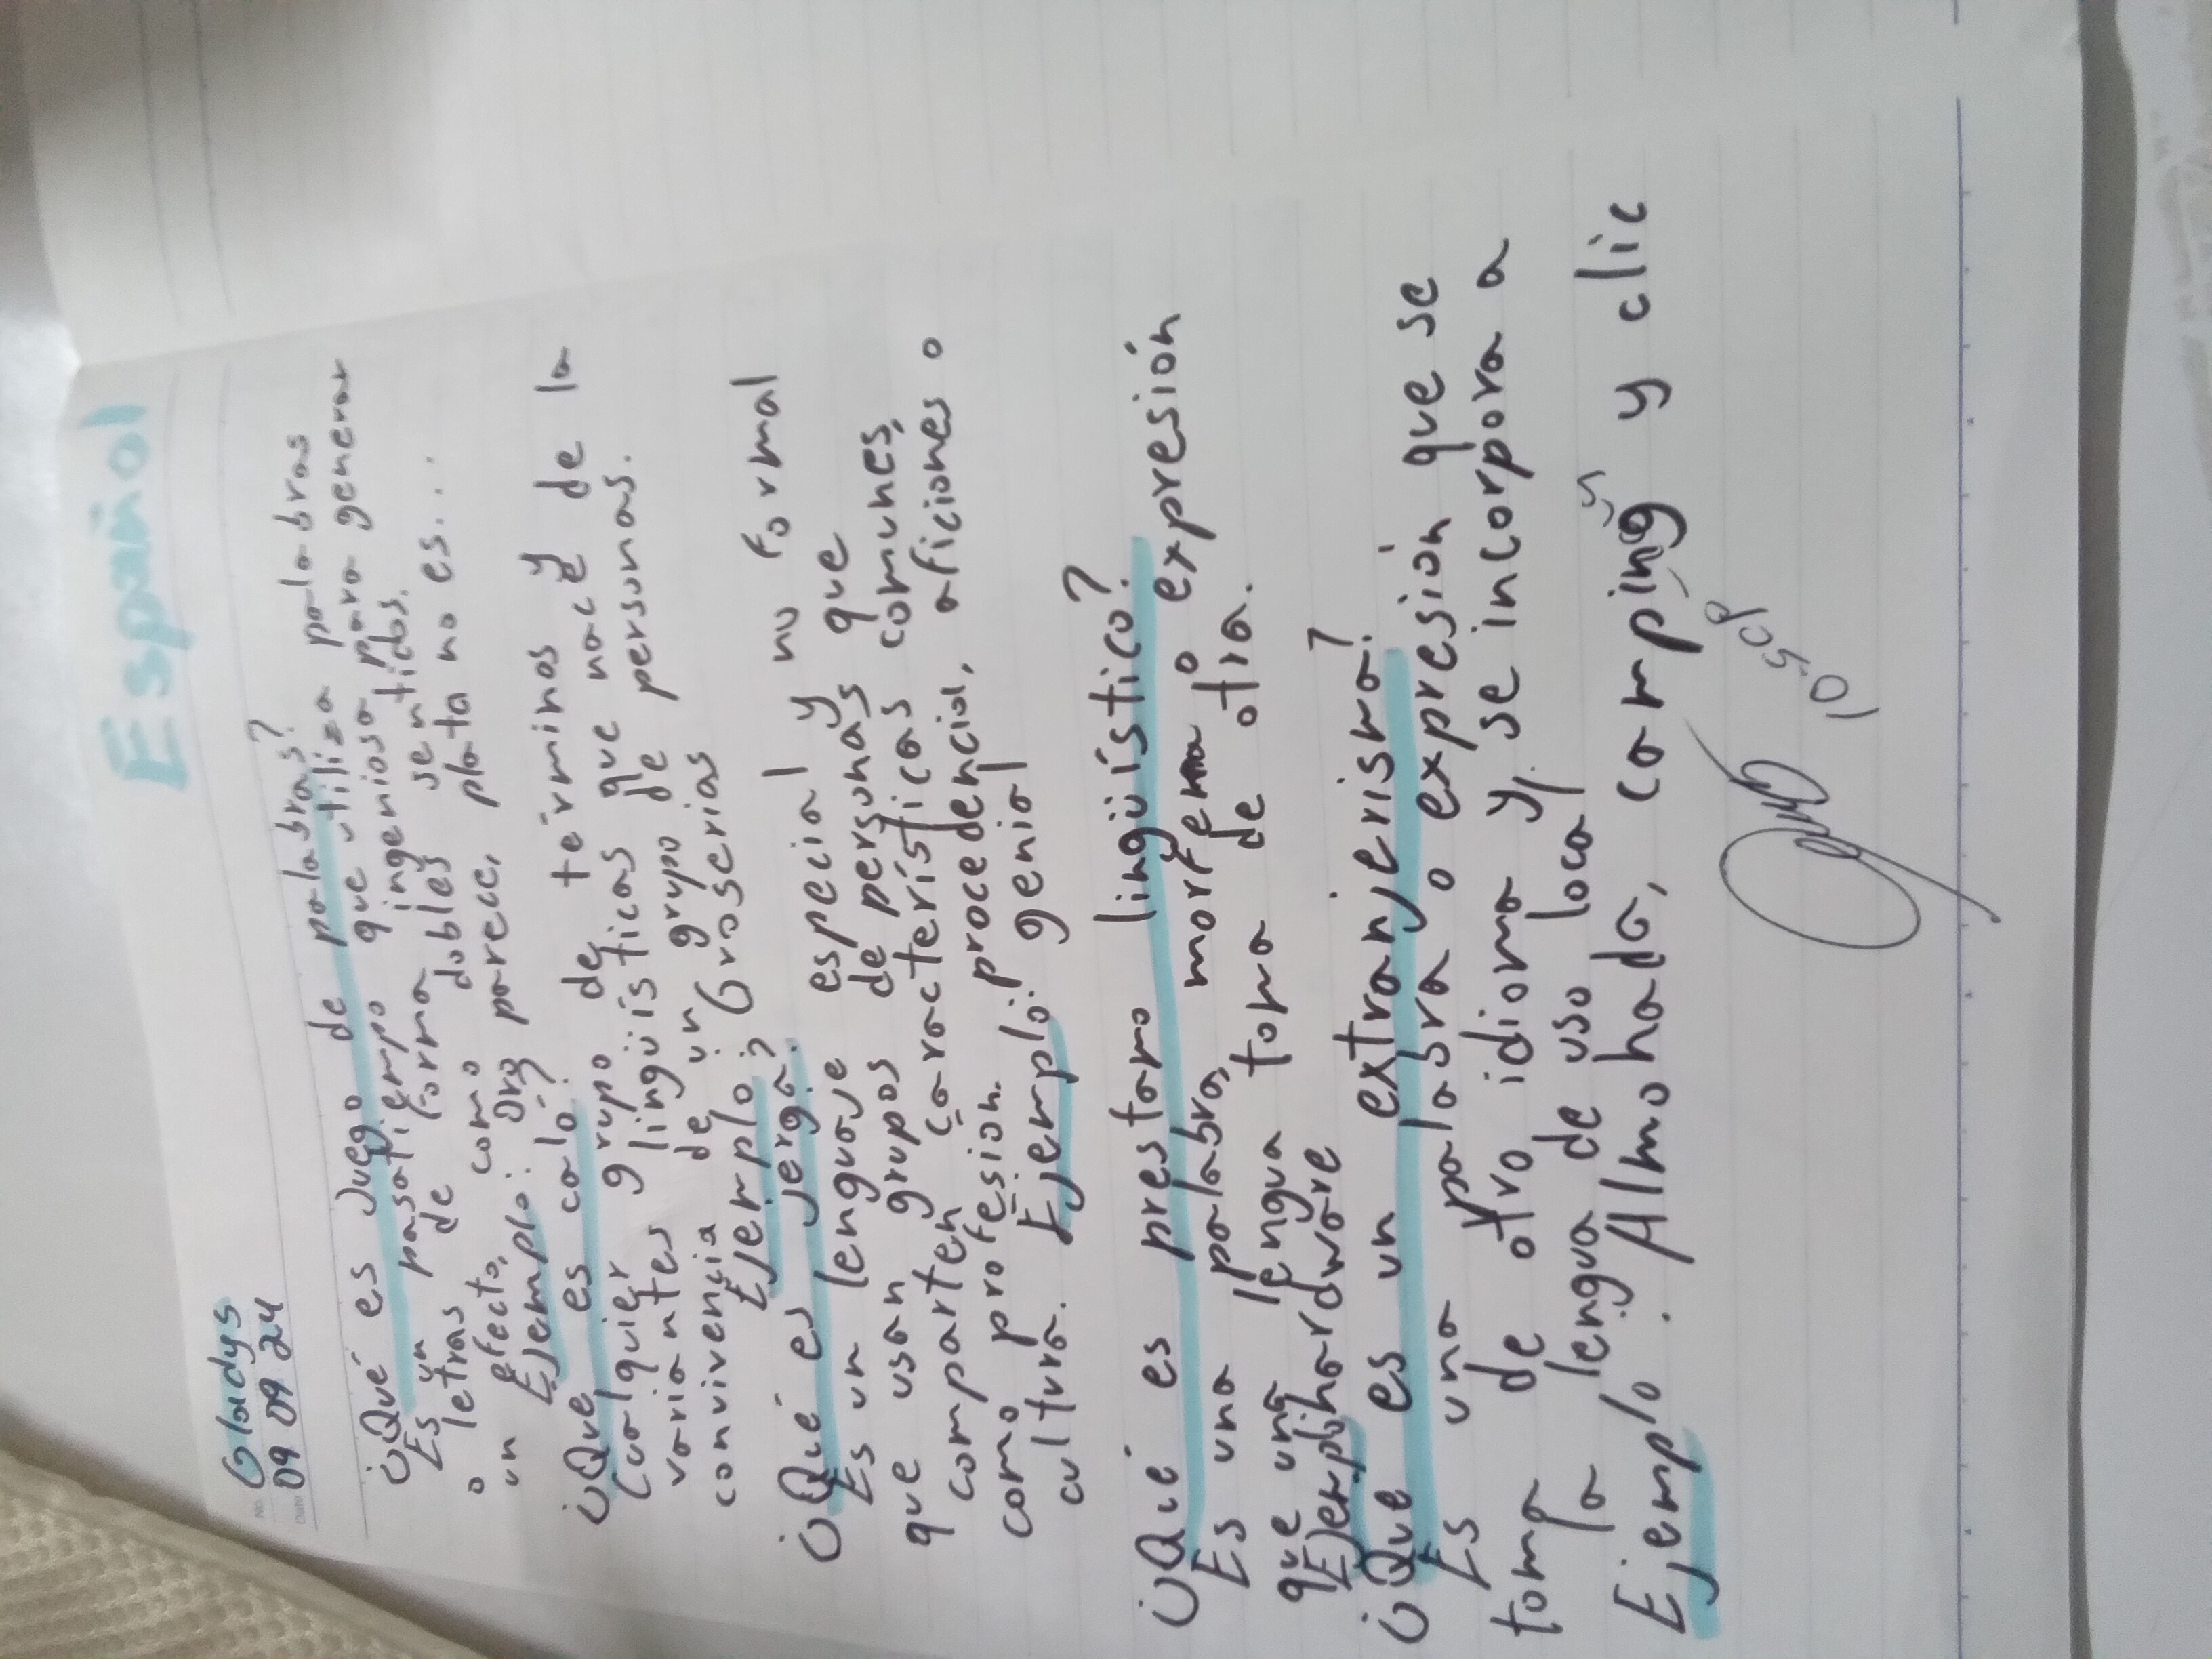 Español
No. Gladys
Date 09 09 24
¿Qué es juego de palabras?
Es un pasatiempo que utiliza palabras
o letras de forma ingeniosa para generar
un efecto, como dobles sentidos.
Ejemplo: Oro parece, plata no es...
¿Qué es caló?
Cualquier grupo de términos y
variantes lingüísticas que nace de la
convivencia de un grupo de personas.
Ejemplo: Groserias
¿Qué es jerga?
Es un lenguaje especial y no formal
que usan grupos de personas que
comparten características comunes,
como profesion. procedencial, aficiones o
cultura. Ejemplo: genial
¿Qué es prestamo lingüístico?
Es una palabra, morfema o expresión
que una lengua toma de otra.
Ejemplo: hardware
¿Que es un extranjerismo?
Es una palabra o expresión que se
toma de otro idioma y, se incorpora a
la lengua de uso local
Ejemplo: Almohada, camping y clic
10 scp